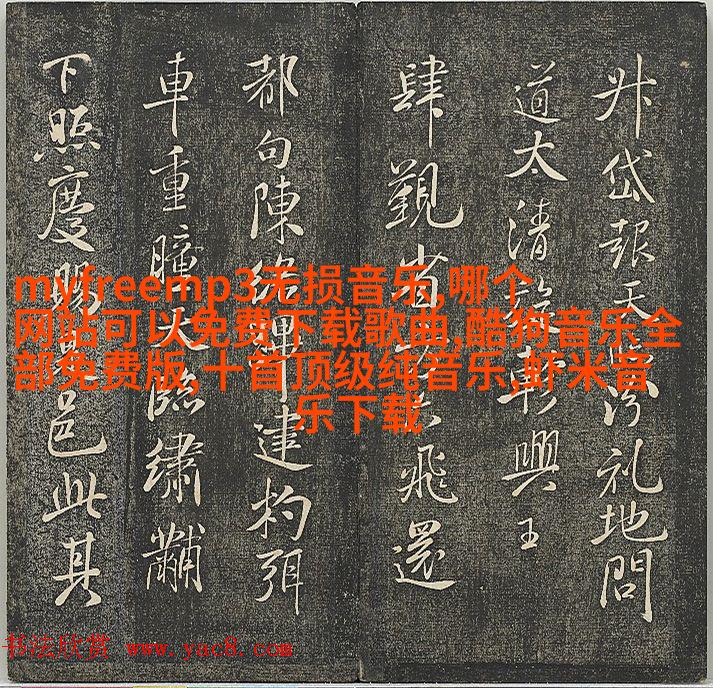 升岱報天汾礼地問
道太清軫興王
肆覲省飛還
都句陳建杓弭
車重瞳天臨繡黼
下照慶賜邑此其
myfreemp3无损音乐,哪个
网站可以免费下载歌曲,酷狗音乐全
部免费版,十首顶级纯音乐,虾米音
乐下载
书法欣赏 www.yac8.com